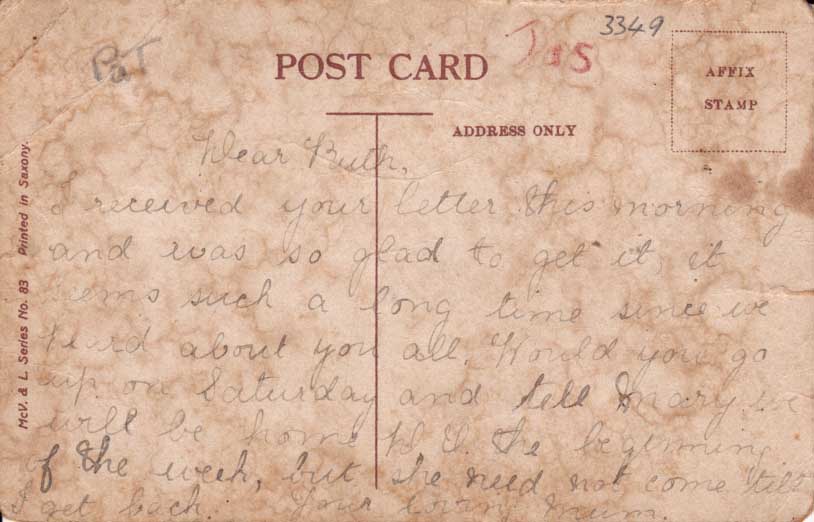 3349
PaT
Tas
POST CARD
AFFIX
STAMP
ADDRESS ONLY
McV. & L. Series No. 83 Printed in Saxony.
Dear Ruth,
I received your letter this morning
and was so glad to get it, it
seems such a long time since we
heard about you all. Would you go
up on Saturday and tell Mary we
will be home D.V. the beginning
of the week, but she need not come till
I get back. Your loving Mum.